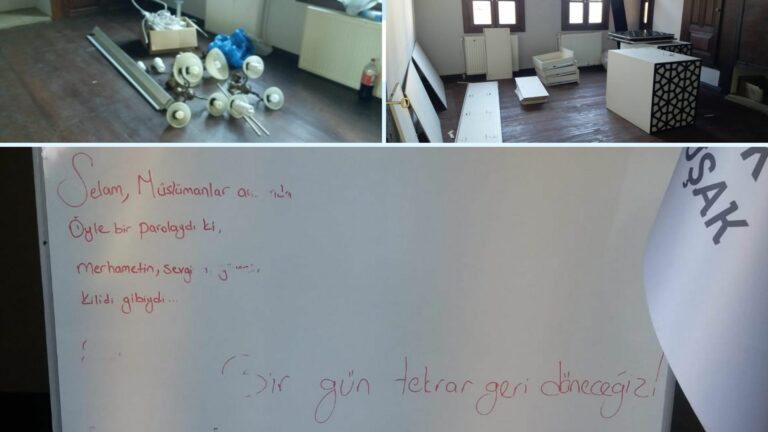 Selam, Müslümanlar
Öyle bir parolaydı ki,
merhametin, sevgi
kilidi gibiydi...
Bir gün tekrar geri döneceğiz!
UŞAK